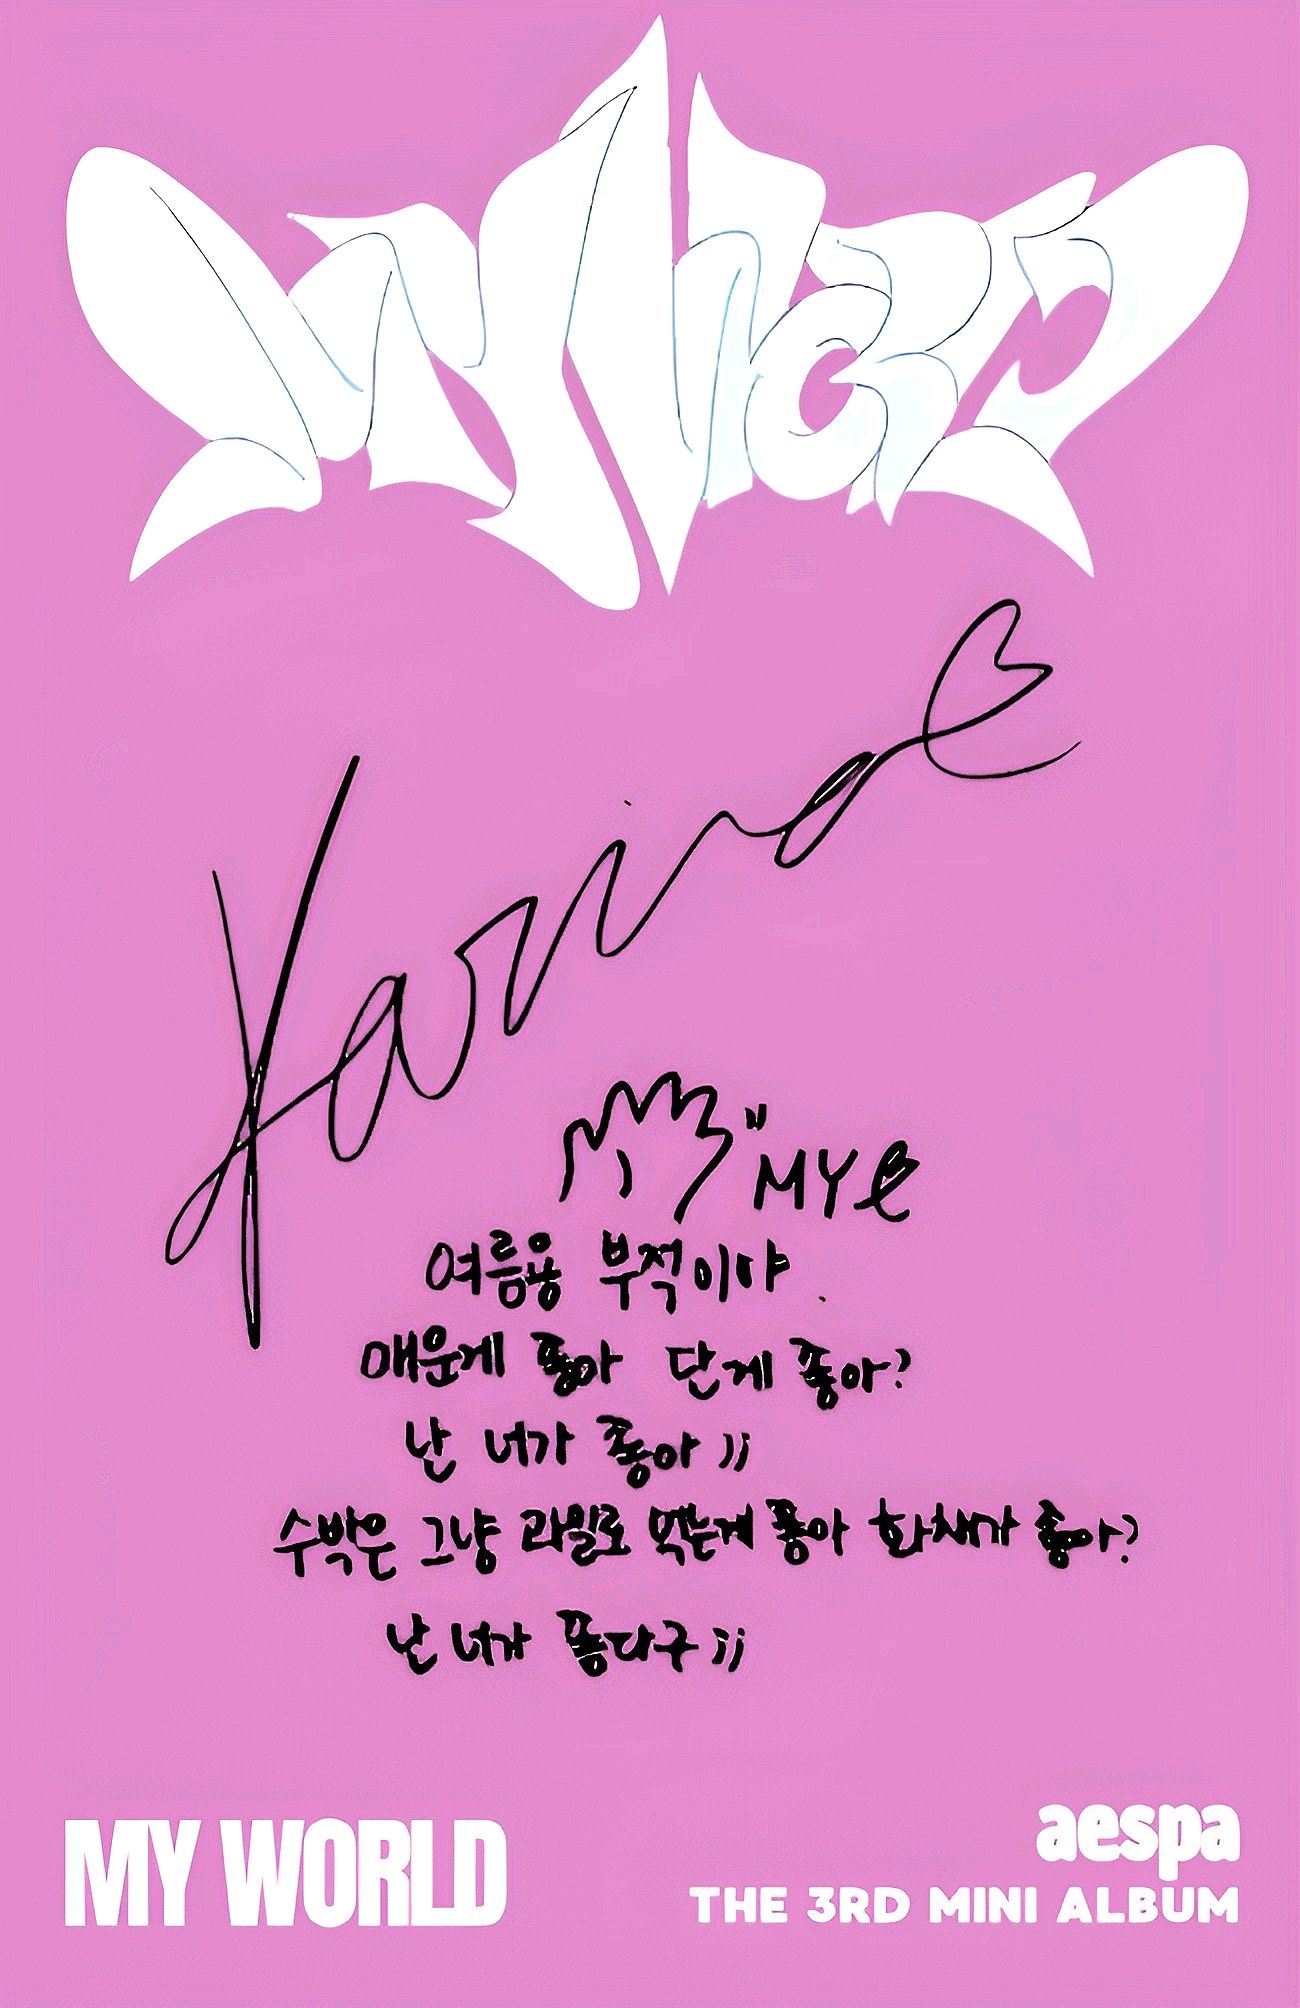 MY WORLD
Karina
"MY
여름용 부적이야
매운게 좋아 단게 좋아?
난 너가 좋아;;
수박은 그냥 과일로 먹는게 좋아 화채가 좋아?
난 너가 좋다구;;
MY WORLD
aespa
THE 3RD MINI ALBUM